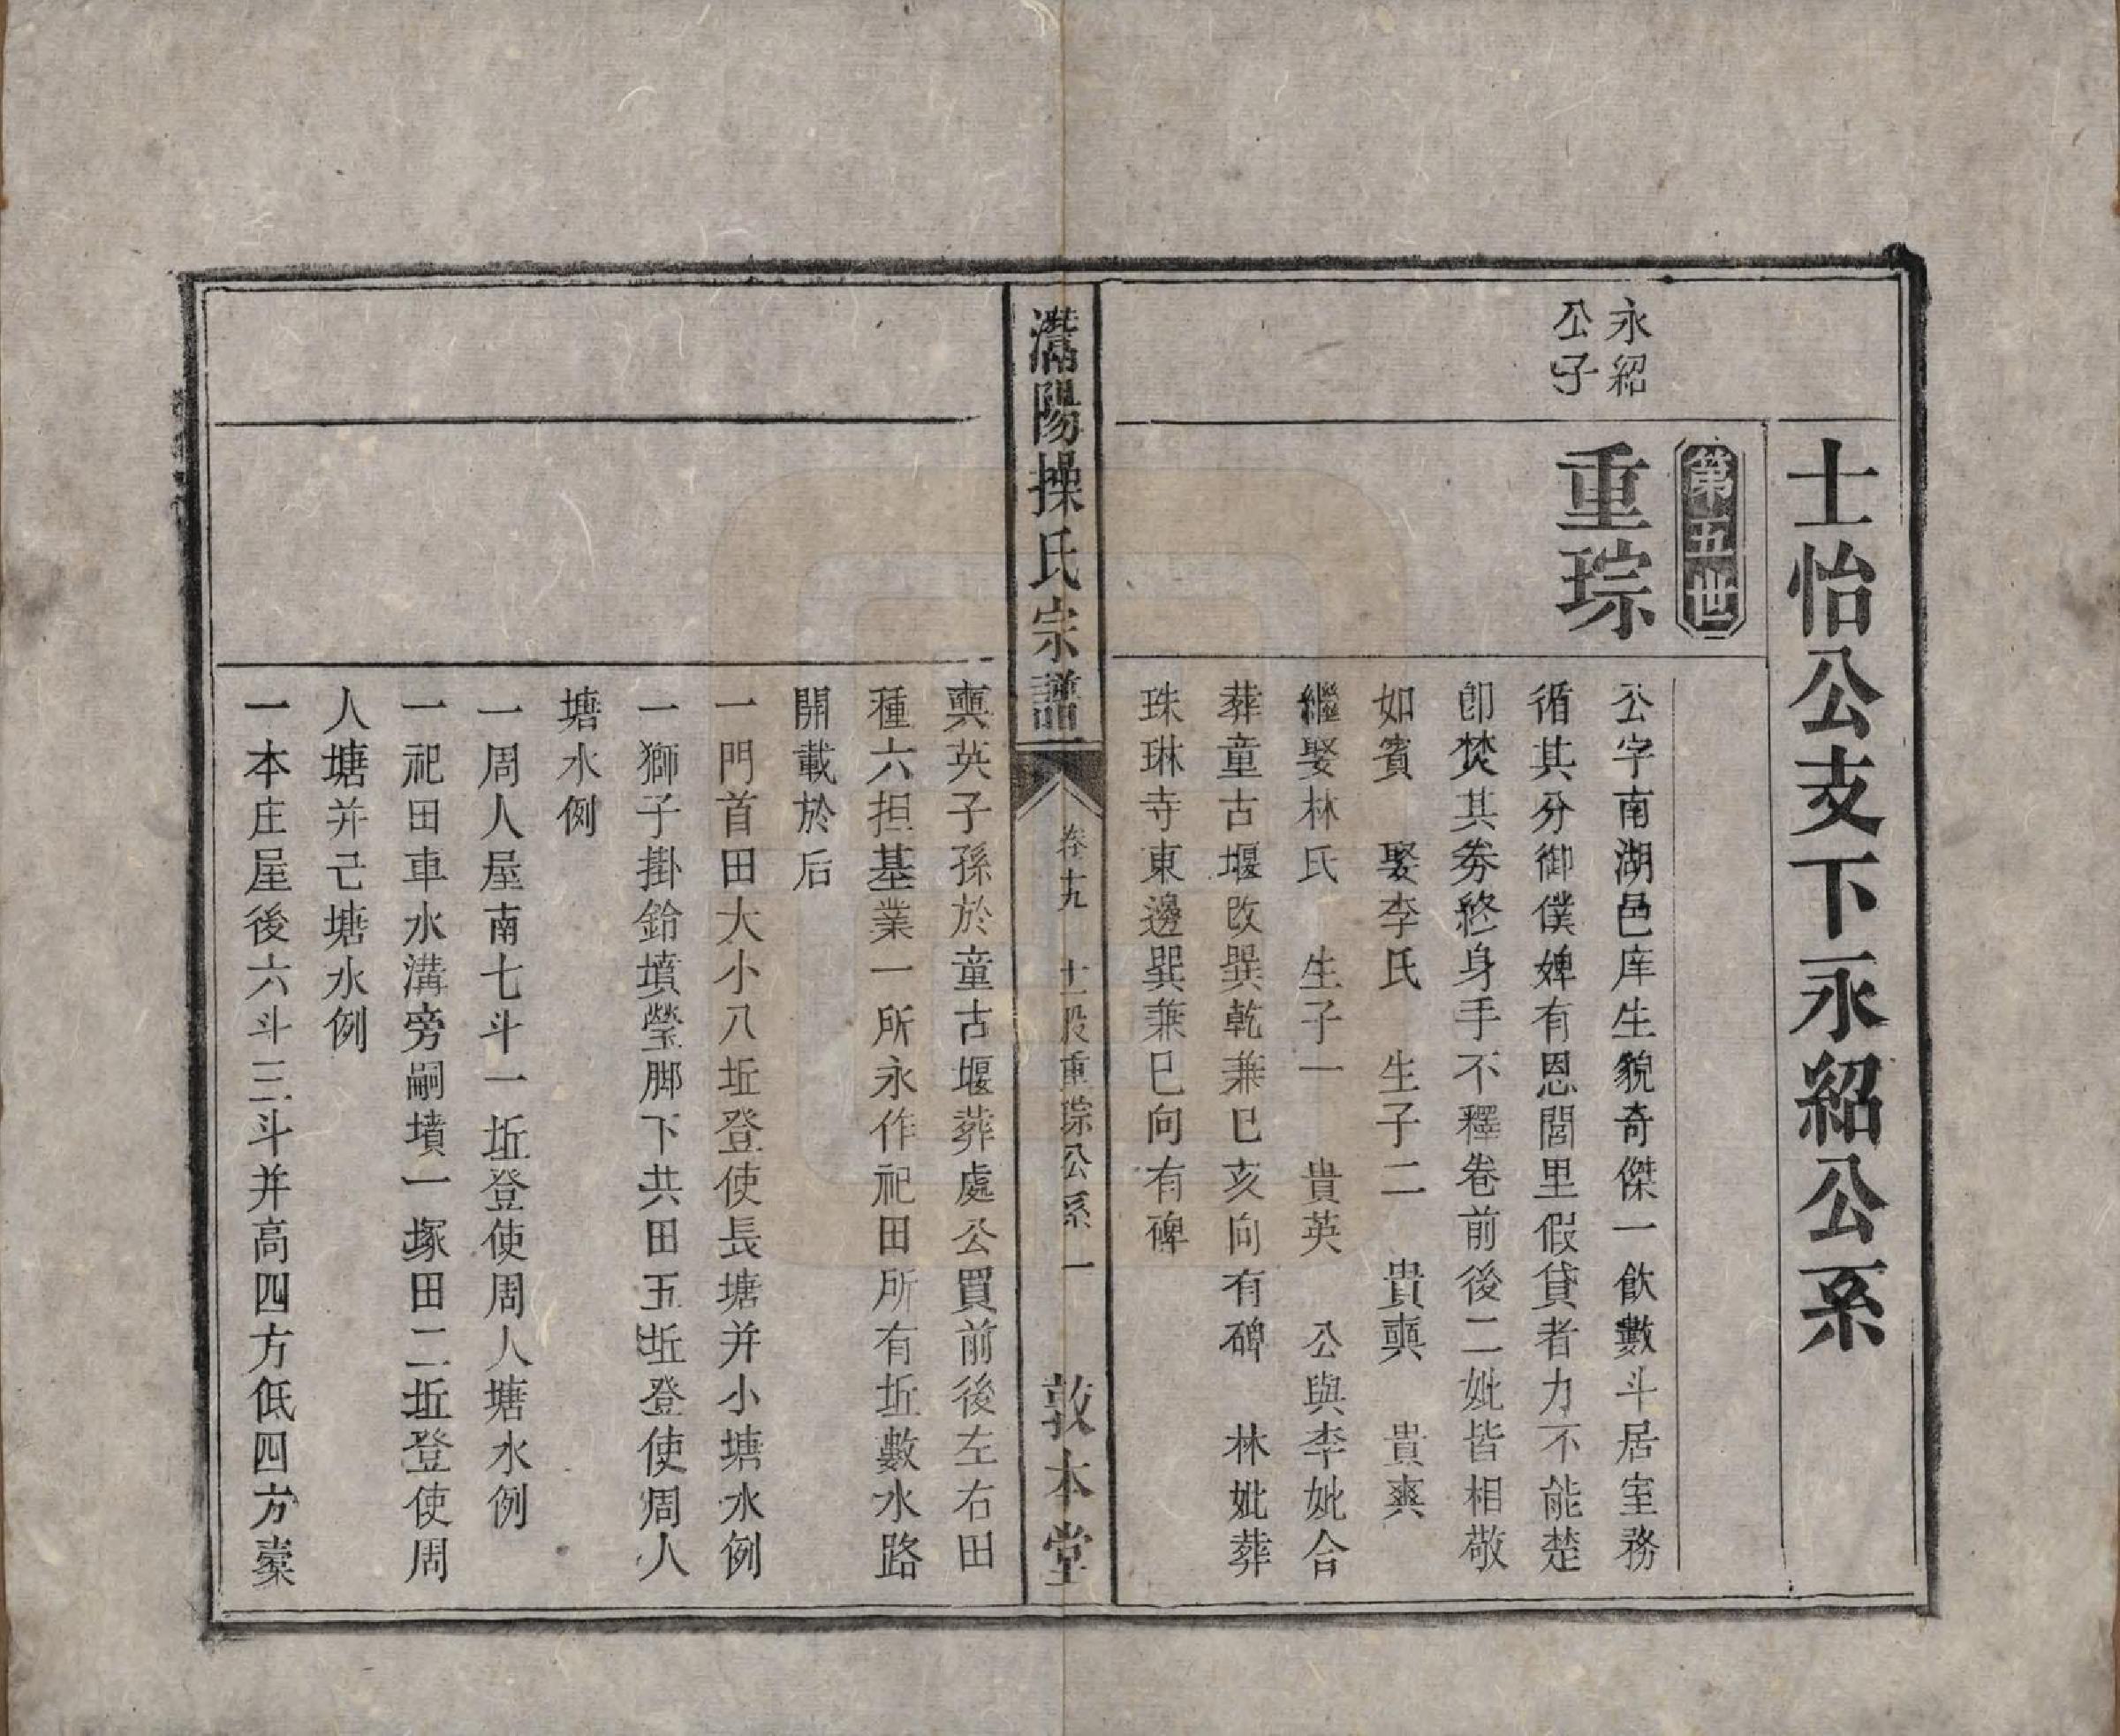 士怡公支下永紹公系
第五世
永紹
公子
重琮
公字南湖邑庠生貌奇傑一飲數斗居室務
循其分御僕婢有恩閭里假貸者力不能楚
卽焚其劵終身手不釋卷前後二妣皆相敬
如賓　娶李氏　生子二　貴奭　貴爽
繼娶林氏　生子一　貴英　公與李妣合
葬童古堰改巽乾兼巳亥向有碑　林妣葬
珠琳寺東邊巽兼巳向有碑
濡陽操氏宗譜
卷十九　士股重琮公系　一　敦本堂
奭英子孫於童古堰葬處公買前後左右田
種六担基業一所永作祀田所有坵數水路
開載於后
一門首田大小八坵登使長塘并小塘水例
一獅子掛鈴墳塋脚下共田五坵登使周人
塘水例
一周人屋南七斗一坵登使周人塘水例
一祀田車水溝旁嗣墳一塚田二坵登使周
人塘并己塘水例
一本庄屋後六斗三斗并高四方低四方